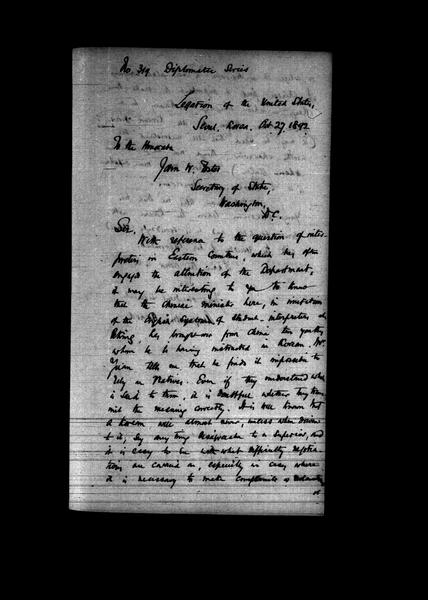 No. 319 Diplomatic Series
Legation of the United States,
Seoul, Korea, Oct 27 1892
To the Honorable
John W. Foster
Secretary of State,
Washington,
D.C.
Sir.
With reference to the question of inter-
preters in Eastern Countries, which has often
engaged the attention of the Department,
it may be interesting to you to know
that the Chinese minister here, in imitation
of the English system of student-interpreters at
Peking, has brought over from China ten youths
whom he is having instructed in Korean. Mr.
Yuan tells me that he finds it impossible to
rely on Natives. Even if they understand what
is said to them, it is doubtful whether they trans-
mit the meaning correctly. It is well known that
a Korean will almost never, unless when driven
to it, say any thing disagreeable to a superior, and
it is easy to see with what difficulty negotia-
tions are carried on, especially in cases where
it is necessary to make complaints or
of